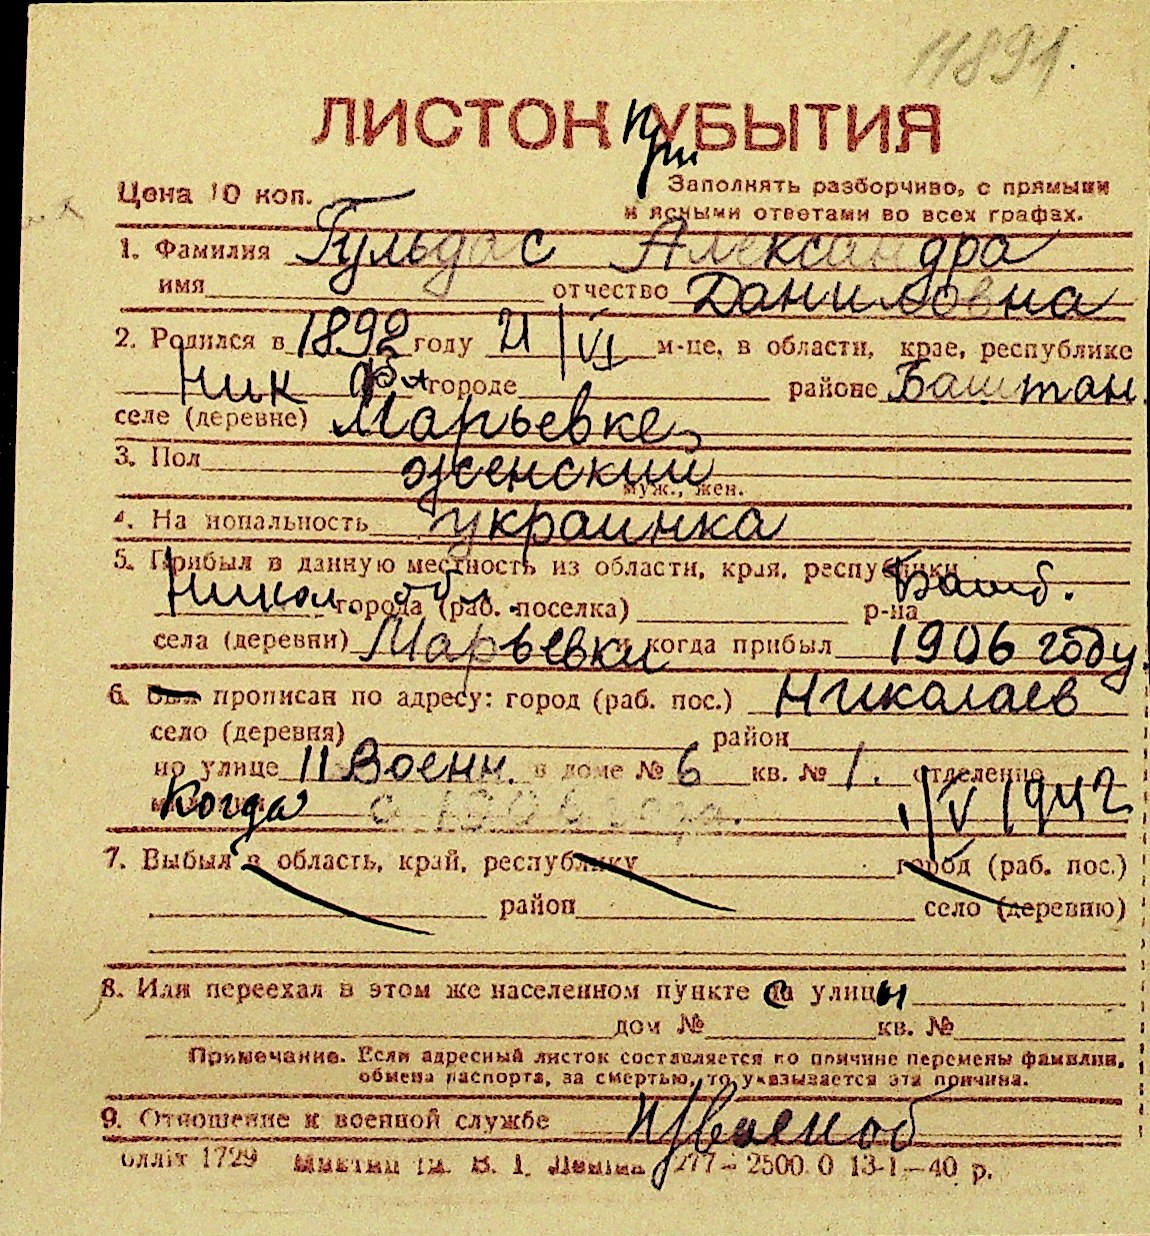 11891.
ЛИСТОК при УБЫТИЯ
Цена 10 коп.
Заполнять разборчиво, с прямыми
и ясными ответами во всех графах.
1. Фамилия Гульдас Александра
имя отчество Даниловна
2. Родился в 1892 году 21/VI м-це, в области, крае, республике
Ник обл городе районе Баштан.
селе (деревне) Марьевке
3. Пол женский
муж., жен.
4. Национальность украинка
5. Прибыл в данную местность из области, края, республики Башт.
Никол. обл. города (раб. поселка) р-на
села (деревни) Марьевки и когда прибыл 1906 году
6. Был прописан по адресу: город (раб. пос.) Николаев
село (деревня) район
по улице 11 Военн. в доме № 6 кв. № 1. отделение
милиции Когда с 1906 года. 1/V 1942
7. Выбыл в область, край, республику город (раб. пос.)
район село (деревню)
8. Или переехал в этом же населенном пункте с улицы
дом № кв. №
Примечание. Если адресный листок составляется по причине перемены фамилии,
обмена паспорта, за смертью, то указывается эта причина.
9. Отношение к военной службе н/военноб
Обллiт 1729 Миктип iм. В. І. Ленiна 277 – 2500.0 13-1–40 р.